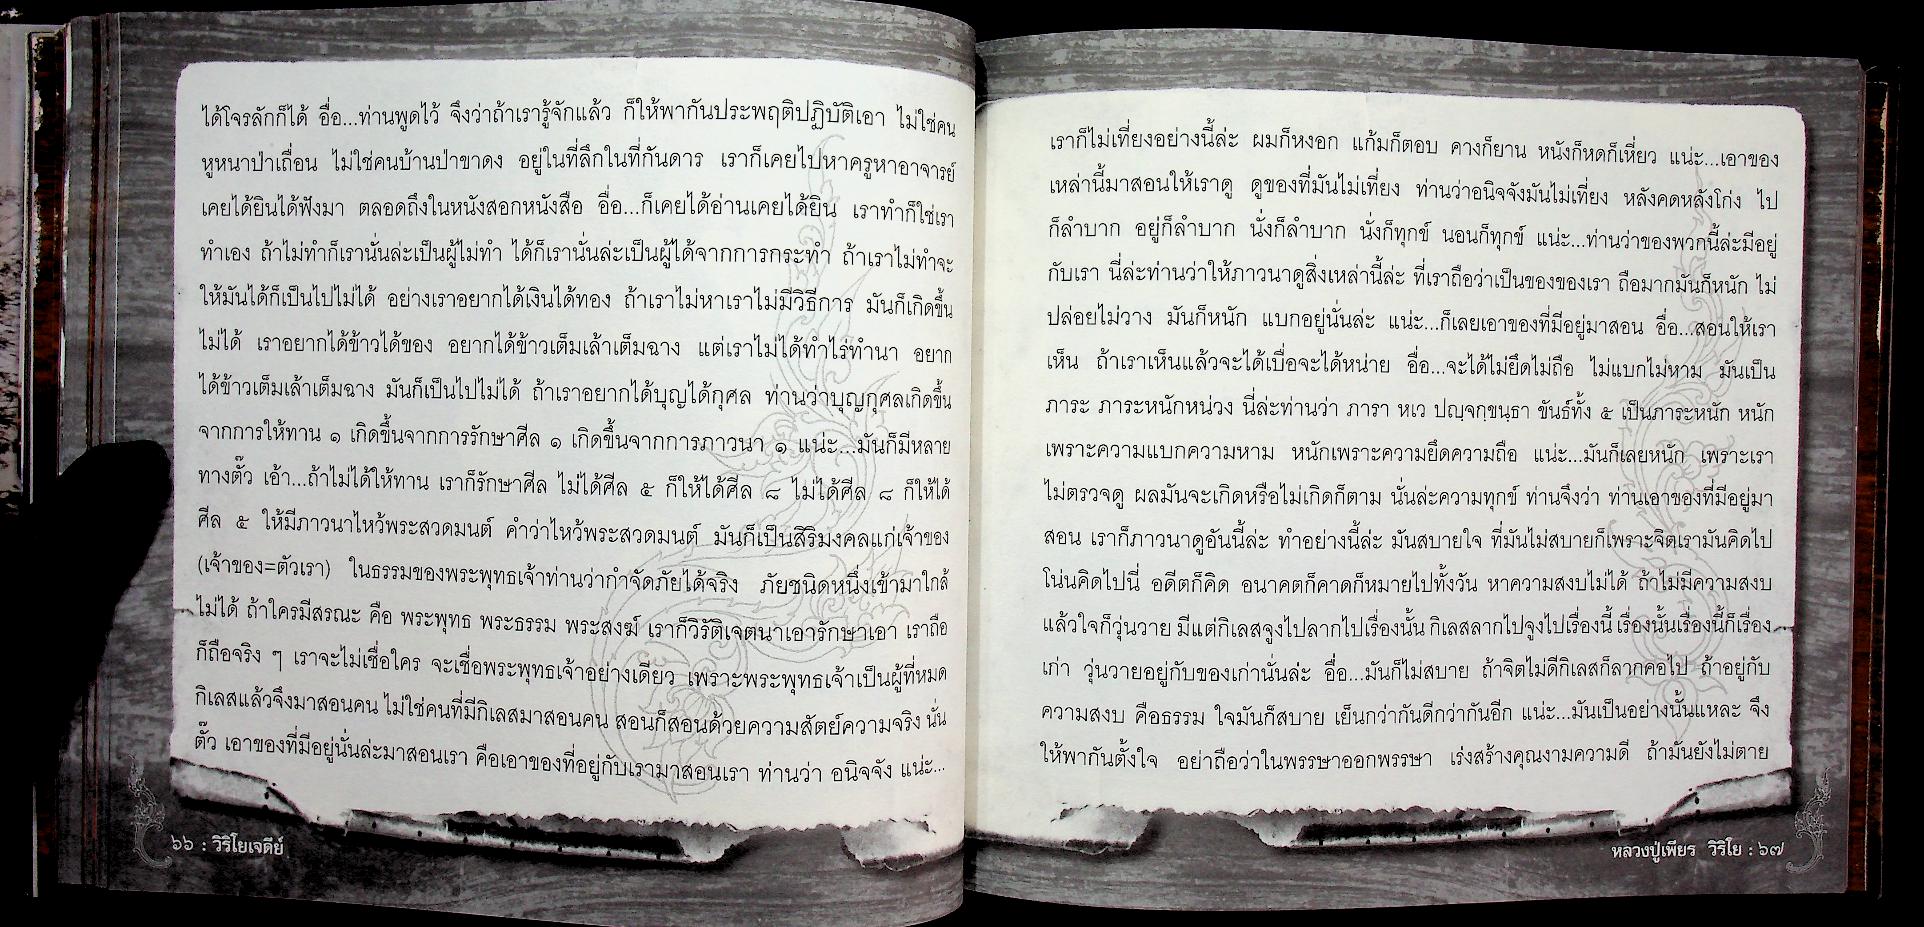 ได้โจรลักก็ได้ อื่อ...ท่านพูดไว้ จึงว่าถ้าเรารู้จักแล้ว ก็ให้พากันประพฤติปฏิบัติเอา ไม่ใช่คน
หูหนาป่าเถื่อน ไม่ใช่คนบ้านป่าขาดง อยู่ในที่ลึกในที่กันดาร เราก็เคยไปหาครูหาอาจารย์
เคยได้ยินได้ฟังมา ตลอดถึงในหนังสอกหนังสือ อื่อ...ก็เคยได้อ่านเคยได้ยิน เราทำก็ใช่เรา
ทำเอง ถ้าไม่ทำก็เรานั่นล่ะเป็นผู้ไม่ทำ ได้ก็เรานั่นล่ะเป็นผู้ได้จากการกระทำ ถ้าเราไม่ทำจะ
ให้มันได้ก็เป็นไปไม่ได้ อย่างเราอยากได้เงินได้ทอง ถ้าเราไม่หาเราไม่มีวิธีการ มันก็เกิดขึ้น
ไม่ได้ เราอยากได้ข้าวได้ของ อยากได้ข้าวเต็มเล้าเต็มฉาง แต่เราไม่ได้ทำไร่ทำนา อยาก
ได้ข้าวเต็มเล้าเต็มฉาง มันก็เป็นไปไม่ได้ ถ้าเราอยากได้บุญได้กุศล ท่านว่าบุญกุศลเกิดขึ้น
จากการให้ทาน ๑ เกิดขึ้นจากการรักษาศีล ๑ เกิดขึ้นจากการภาวนา ๑ แน่ะ...มันก็มีหลาย
ทางตั๊ว เอ้า...ถ้าไม่ได้ให้ทาน เราก็รักษาศีล ไม่ได้ศีล ๕ ก็ให้ได้ศีล ๘ ไม่ได้ศีล ๘ ก็ให้ได้
ศีล ๕ ให้มีภาวนาไหว้พระสวดมนต์ คำว่าไหว้พระสวดมนต์ มันก็เป็นสิริมงคลแก่เจ้าของ
(เจ้าของ=ตัวเรา) ในธรรมของพระพุทธเจ้าท่านว่ากำจัดภัยได้จริง ภัยชนิดหนึ่งเข้ามาใกล้
ไม่ได้ ถ้าใครมีสรณะ คือ พระพุทธ พระธรรม พระสงฆ์ เราก็วิรัติเจตนาเอารักษาเอา เราถือ
ก็ถือจริง ๆ เราจะไม่เชื่อใคร จะเชื่อพระพุทธเจ้าอย่างเดียว เพราะพระพุทธเจ้าเป็นผู้ที่หมด
กิเลสแล้วจึงมาสอนคน ไม่ใช่คนที่มีกิเลสมาสอนคน สอนก็สอนด้วยความสัตย์ความจริง นั่น
ตั๊ว เอาของที่มีอยู่นั่นล่ะมาสอนเรา คือเอาของที่อยู่กับเรามาสอนเรา ท่านว่า อนิจจัง แน่ะ...
๖๖ : วิริโยเจดีย์
เราก็ไม่เที่ยงอย่างนี้ล่ะ ผมก็หงอก แก้มก็ตอบ คางก็ยาน หนังก็หดก็เหี่ยว แน่ะ...เอาของ
เหล่านี้มาสอนให้เราดู ดูของที่มันไม่เที่ยง ท่านว่าอนิจจังมันไม่เที่ยง หลังคดหลังโก่ง ไป
ก็ลำบาก อยู่ก็ลำบาก นั่งก็ลำบาก นั่งก็ทุกข์ นอนก็ทุกข์ แน่ะ...ท่านว่าของพวกนี้ล่ะมีอยู่
กับเรา นี่ล่ะท่านว่าให้ภาวนาดูสิ่งเหล่านี้ล่ะ ที่เราถือว่าเป็นของของเรา ถือมากมันก็หนัก ไม่
ปล่อยไม่วาง มันก็หนัก แบกอยู่นั่นล่ะ แน่ะ...ก็เลยเอาของที่มีอยู่มาสอน อื่อ...สอนให้เรา
เห็น ถ้าเราเห็นแล้วจะได้เบื่อจะได้หน่าย อื่อ...จะได้ไม่ยึดไม่ถือ ไม่แบกไม่หาม มันเป็น
ภาระ ภาระหนักหน่วง นี่ล่ะท่านว่า ภารา หเว ปญฺจกฺขนฺธา ขันธ์ทั้ง ๕ เป็นภาระหนัก หนัก
เพราะความแบกความหาม หนักเพราะความยึดความถือ แน่ะ...มันก็เลยหนัก เพราะเรา
ไม่ตรวจดู ผลมันจะเกิดหรือไม่เกิดก็ตาม นั่นล่ะความทุกข์ ท่านจึงว่า ท่านเอาของที่มีอยู่มา
สอน เราก็ภาวนาดูอันนี้ล่ะ ทำอย่างนี้ล่ะ มันสบายใจ ที่มันไม่สบายก็เพราะจิตเรามันคิดไป
โน่นคิดไปนี่ อดีตก็คิด อนาคตก็คาดก็หมายไปทั้งวัน หาความสงบไม่ได้ ถ้าไม่มีความสงบ
แล้วใจก็วุ่นวาย มีแต่กิเลสจูงไปลากไปเรื่องนั้น กิเลสลากไปจูงไปเรื่องนี้ เรื่องนั้นเรื่องนี้ก็เรื่อง
เก่า วุ่นวายอยู่กับของเก่านั่นล่ะ อื่อ...มันก็ไม่สบาย ถ้าจิตไม่ดีกิเลสก็ลากคอไป ถ้าอยู่กับ
ความสงบ คือธรรม ใจมันก็สบาย เย็นกว่ากันดีกว่ากันอีก แน่ะ...มันเป็นอย่างนั้นแหละ จึง
ให้พากันตั้งใจ อย่าถือว่าในพรรษาออกพรรษา เร่งสร้างคุณงามความดี ถ้ามันยังไม่ตาย
หลวงปู่เพียร วิริโย : ๖๗